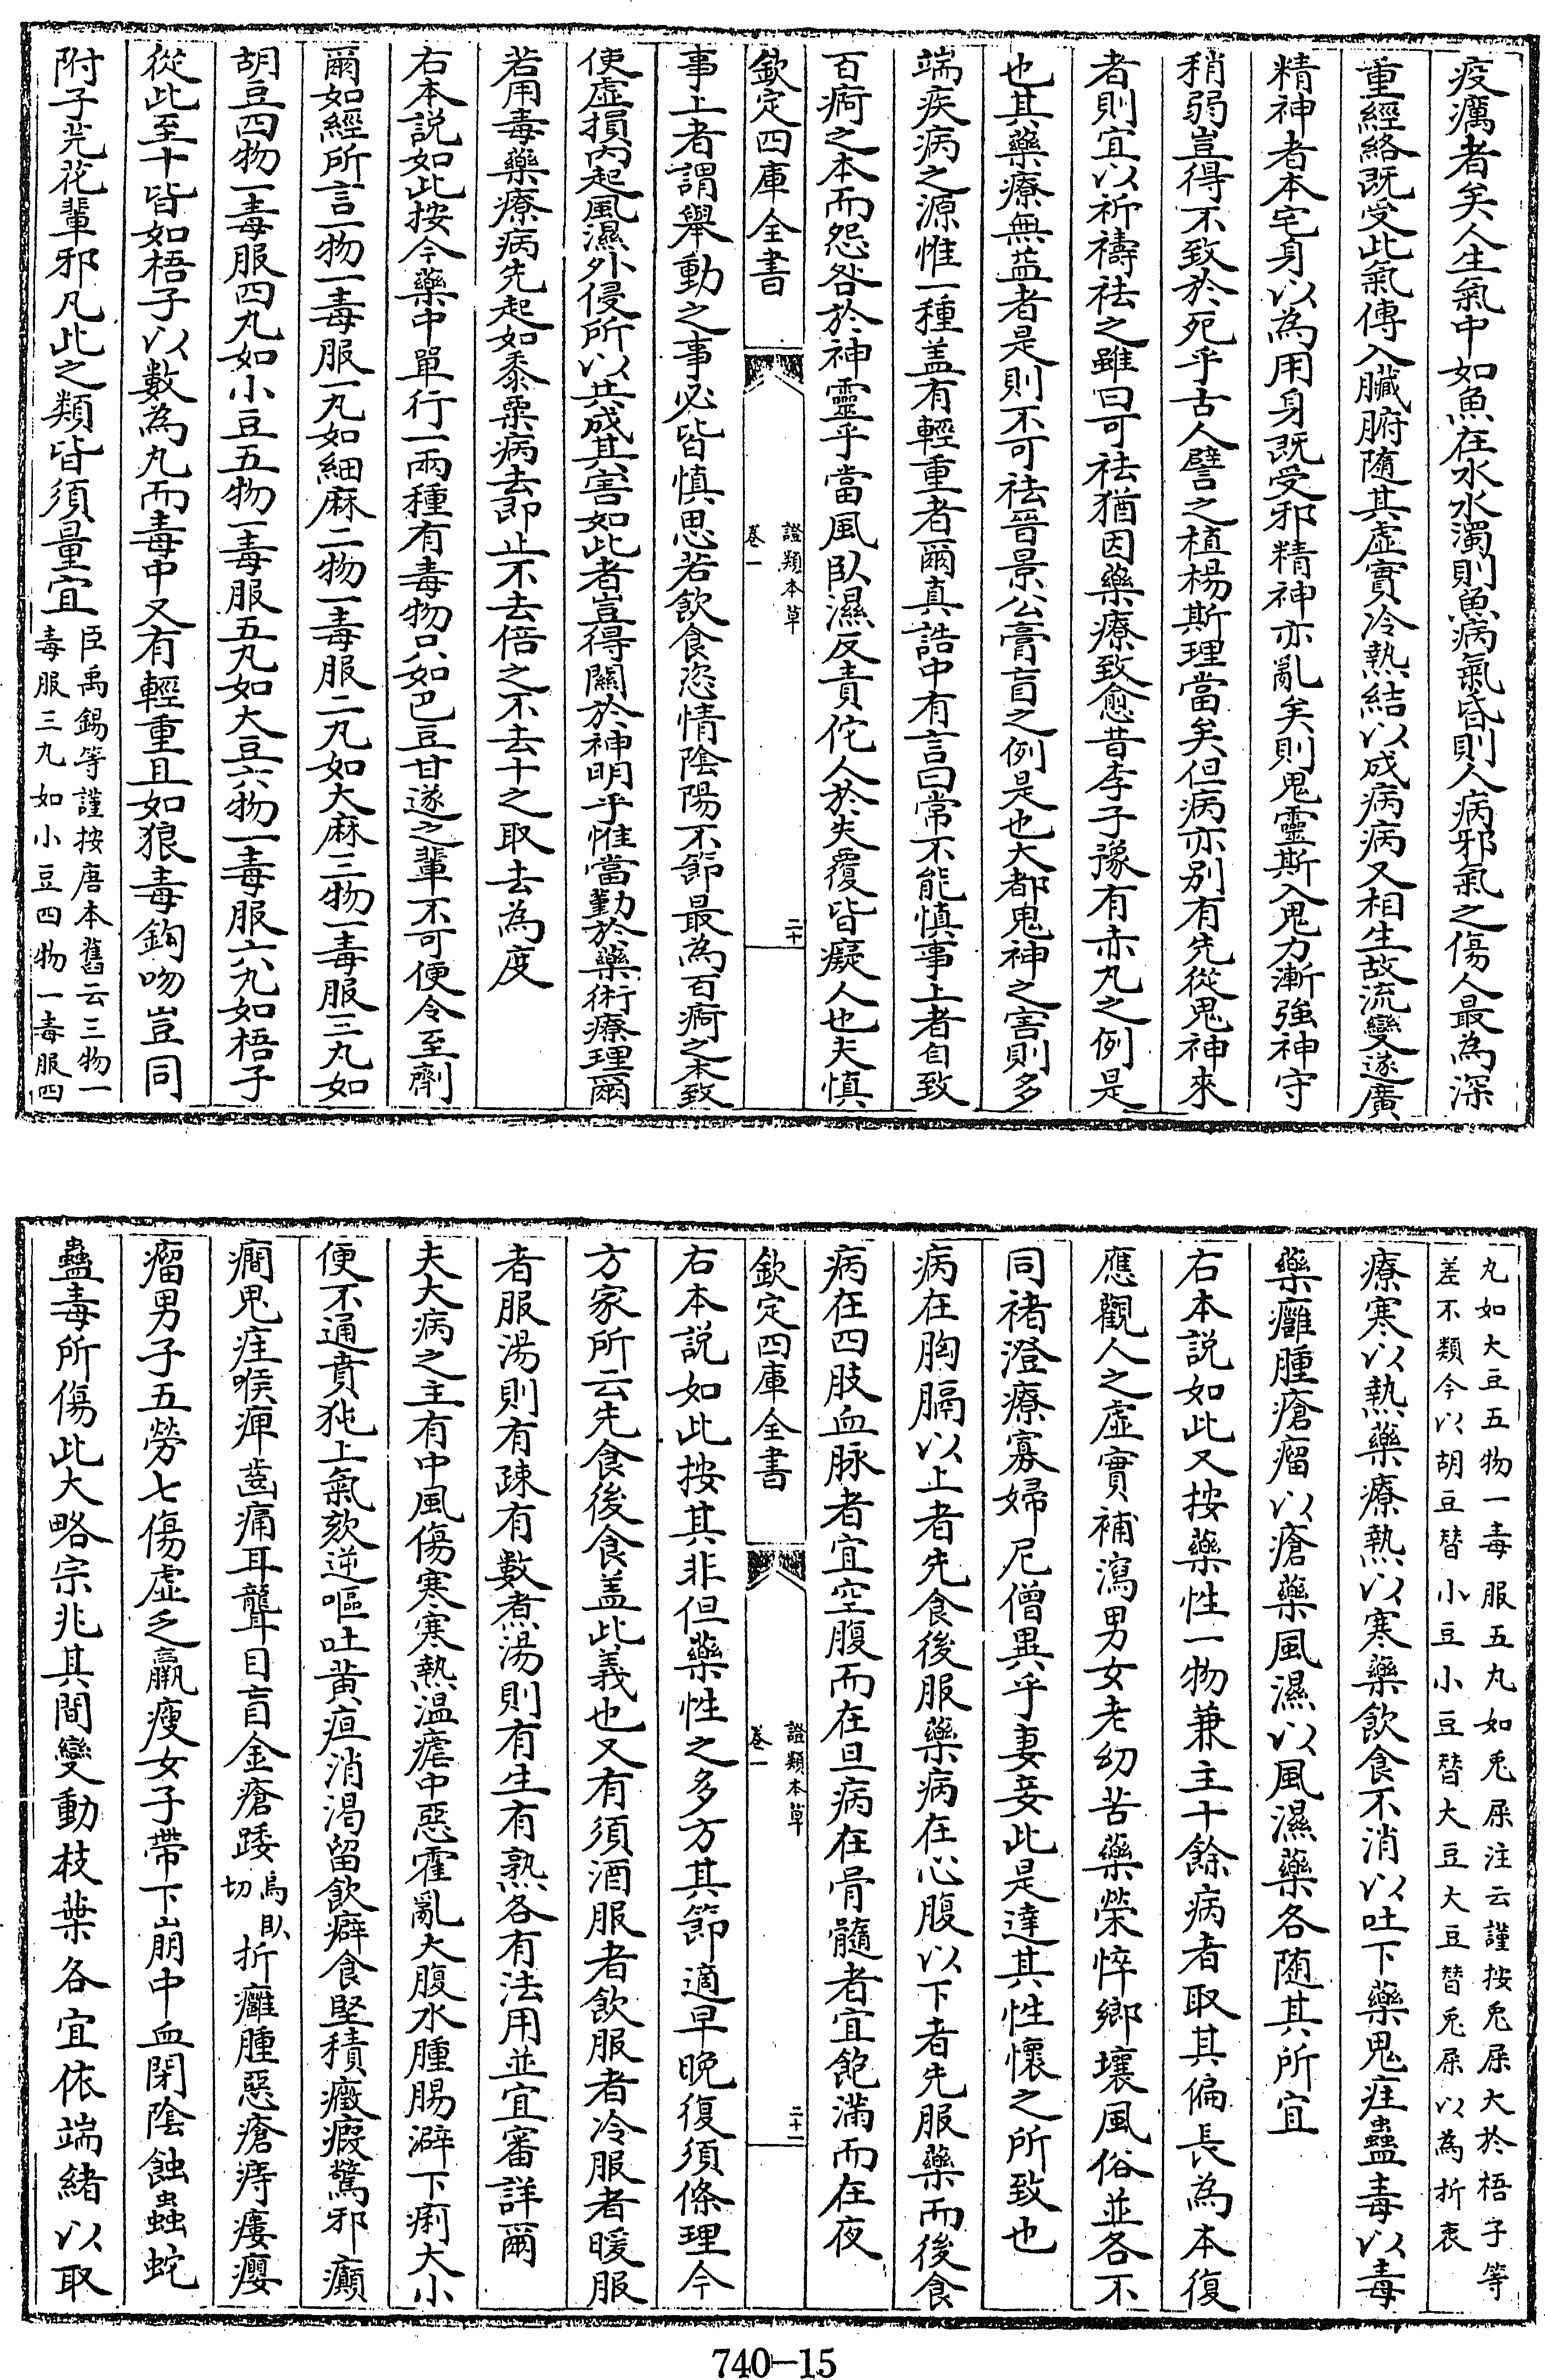 疫癘者矣人生氣中如魚在水水濁則魚病氣昏則人病邪氣之傷人最為深
重經絡既受此氣傳入臟腑隨其虛實冷熱結以成病病又相生故流變遂廣
精神者本宅身以為用身既受邪精神亦亂矣則鬼靈斯入鬼力漸強神守
稍弱豈得不致於死乎古人譬之植楊斯理當矣但病亦别有先從鬼神來
者則宜以祈禱祛之雖曰可祛猶因藥療致愈昔李子豫有赤丸之例是
也其藥療無益者是則不可祛晉景公膏肓之例是也大都鬼神之害則多
端疾病之源惟一種盖有輕重者爾真誥中有言曰常不能慎事上者自致
百痾之本而怨咎於神靈乎當風臥濕反責佗人於失覆皆癡人也夫慎
欽定四庫全書
證類本草
卷一
二十
事上者謂舉動之事必皆慎思若飲食恣情陰陽不節最為百痾之本致
使虛損内起風濕外侵所以共成其害如此者豈得關於神明乎惟當勤於藥術療理爾
若用毒藥療病先起如黍粟病去即止不去倍之不去十之取去為度
右本説如此按今藥中單行一兩種有毒物只如巴豆甘遂之輩不可便令至劑
爾如經所言一物一毒服一丸如細麻二物一毒服二丸如大麻三物一毒服三丸如
胡豆四物一毒服四丸如小豆五物一毒服五丸如大豆六物一毒服六丸如梧子
從此至十皆如梧子以數為丸而毒中又有輕重且如狼毒鉤吻豈同
附子芫花輩邪凡此之類皆須量宜臣禹錫等謹按唐本舊云三物一
毒服三丸如小豆四物一毒服四
丸如大豆五物一毒服五丸如兎屎注云謹按兎屎大於梧子等
差不類今以胡豆替小豆小豆替大豆大豆替兎屎以為折衷
療寒以熱藥療熱以寒藥飲食不消以吐下藥鬼疰蠱毒以毒
藥癰腫瘡瘤以瘡藥風濕以風濕藥各隨其所宜
右本説如此又按藥性一物兼主十餘病者取其偏長為本復
應觀人之虛實補瀉男女老幼苦藥榮悴鄉壤風俗並各不
同褚澄療寡婦尼僧異乎妻妾此是達其性懷之所致也
病在胸膈以上者先食後服藥病在心腹以下者先服藥而後食
病在四肢血脉者宜空腹而在旦病在骨髓者宜飽滿而在夜
欽定四庫全書
證類本草
卷一
二十一
右本説如此按其非但藥性之多方其節適早晚復須條理今
方家所云先食後食盖此義也又有須酒服者飲服者冷服者暖服
者服湯則有疎有數煮湯則有生有熟各有法用並宜審詳爾
夫大病之主有中風傷寒寒熱温瘧中惡霍亂大腹水腫腸澼下痢大小
便不通賁㹠上氣欬逆嘔吐黄疸消渴留飲癖食堅積癥瘕驚邪癲
癇鬼疰喉痺齒痛耳聾目盲金瘡踒烏臥
切折癰腫惡瘡痔瘻癭
瘤男子五勞七傷虛乏羸瘦女子帶下崩中血閉陰蝕蟲蛇
蠱毒所傷此大略宗兆其間變動枝葉各宜依端緒以取
740-15